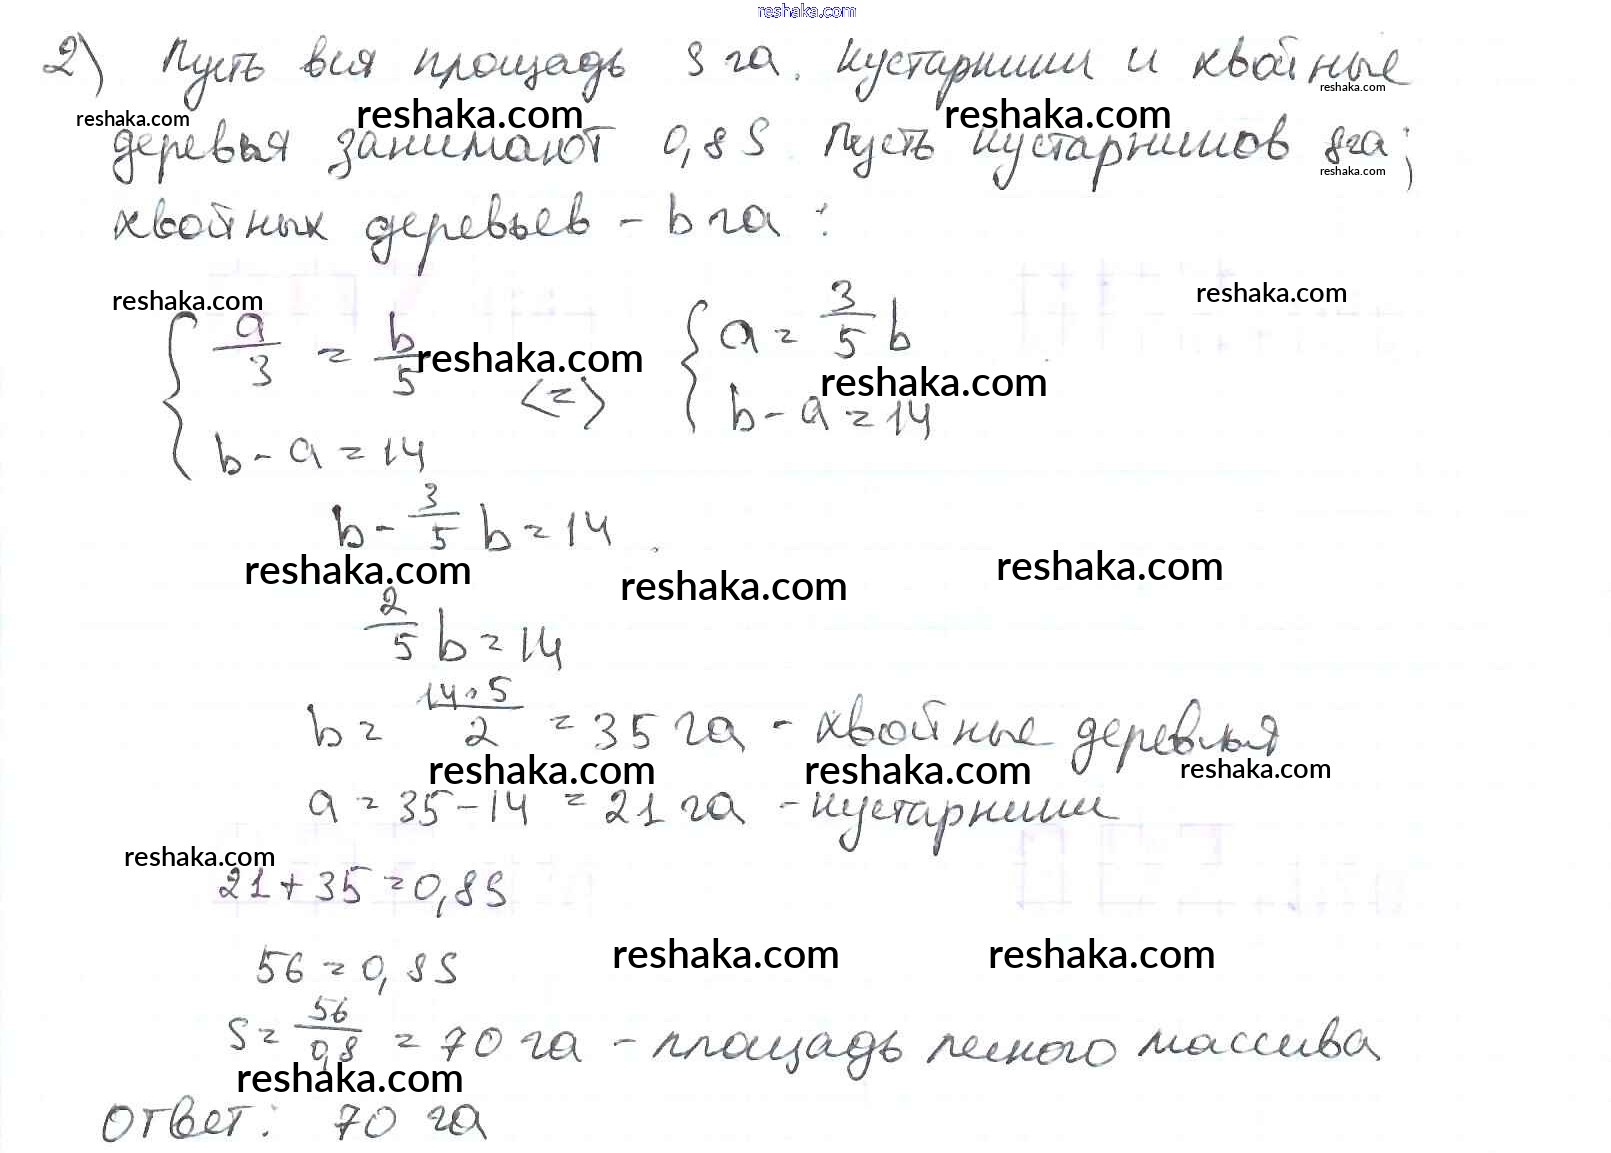 reshaka.com
2) Пусть вся площадь S га. Кустарники и хвойные
reshaka.com
reshaka.com reshaka.com reshaka.com
деревья занимают 0,8 S. Пусть кустарников га;
reshaka.com
хвойных деревьев – b га:
reshaka.com reshaka.com
{ a/3 = b/5 <=> { a = 3/5 b
reshaka.com reshaka.com
b - a = 14 b - a = 14
b - 3/5 b = 14
reshaka.com reshaka.com reshaka.com
2/5 b = 14
b = 14·5/2 = 35 га - хвойные деревья
reshaka.com reshaka.com reshaka.com
a = 35 - 14 = 21 га - кустарники
reshaka.com
21 + 35 = 0,8S
56 = 0,8S
reshaka.com reshaka.com
S = 56/0,8 = 70 га - площадь лесного массива
reshaka.com
Ответ: 70 га